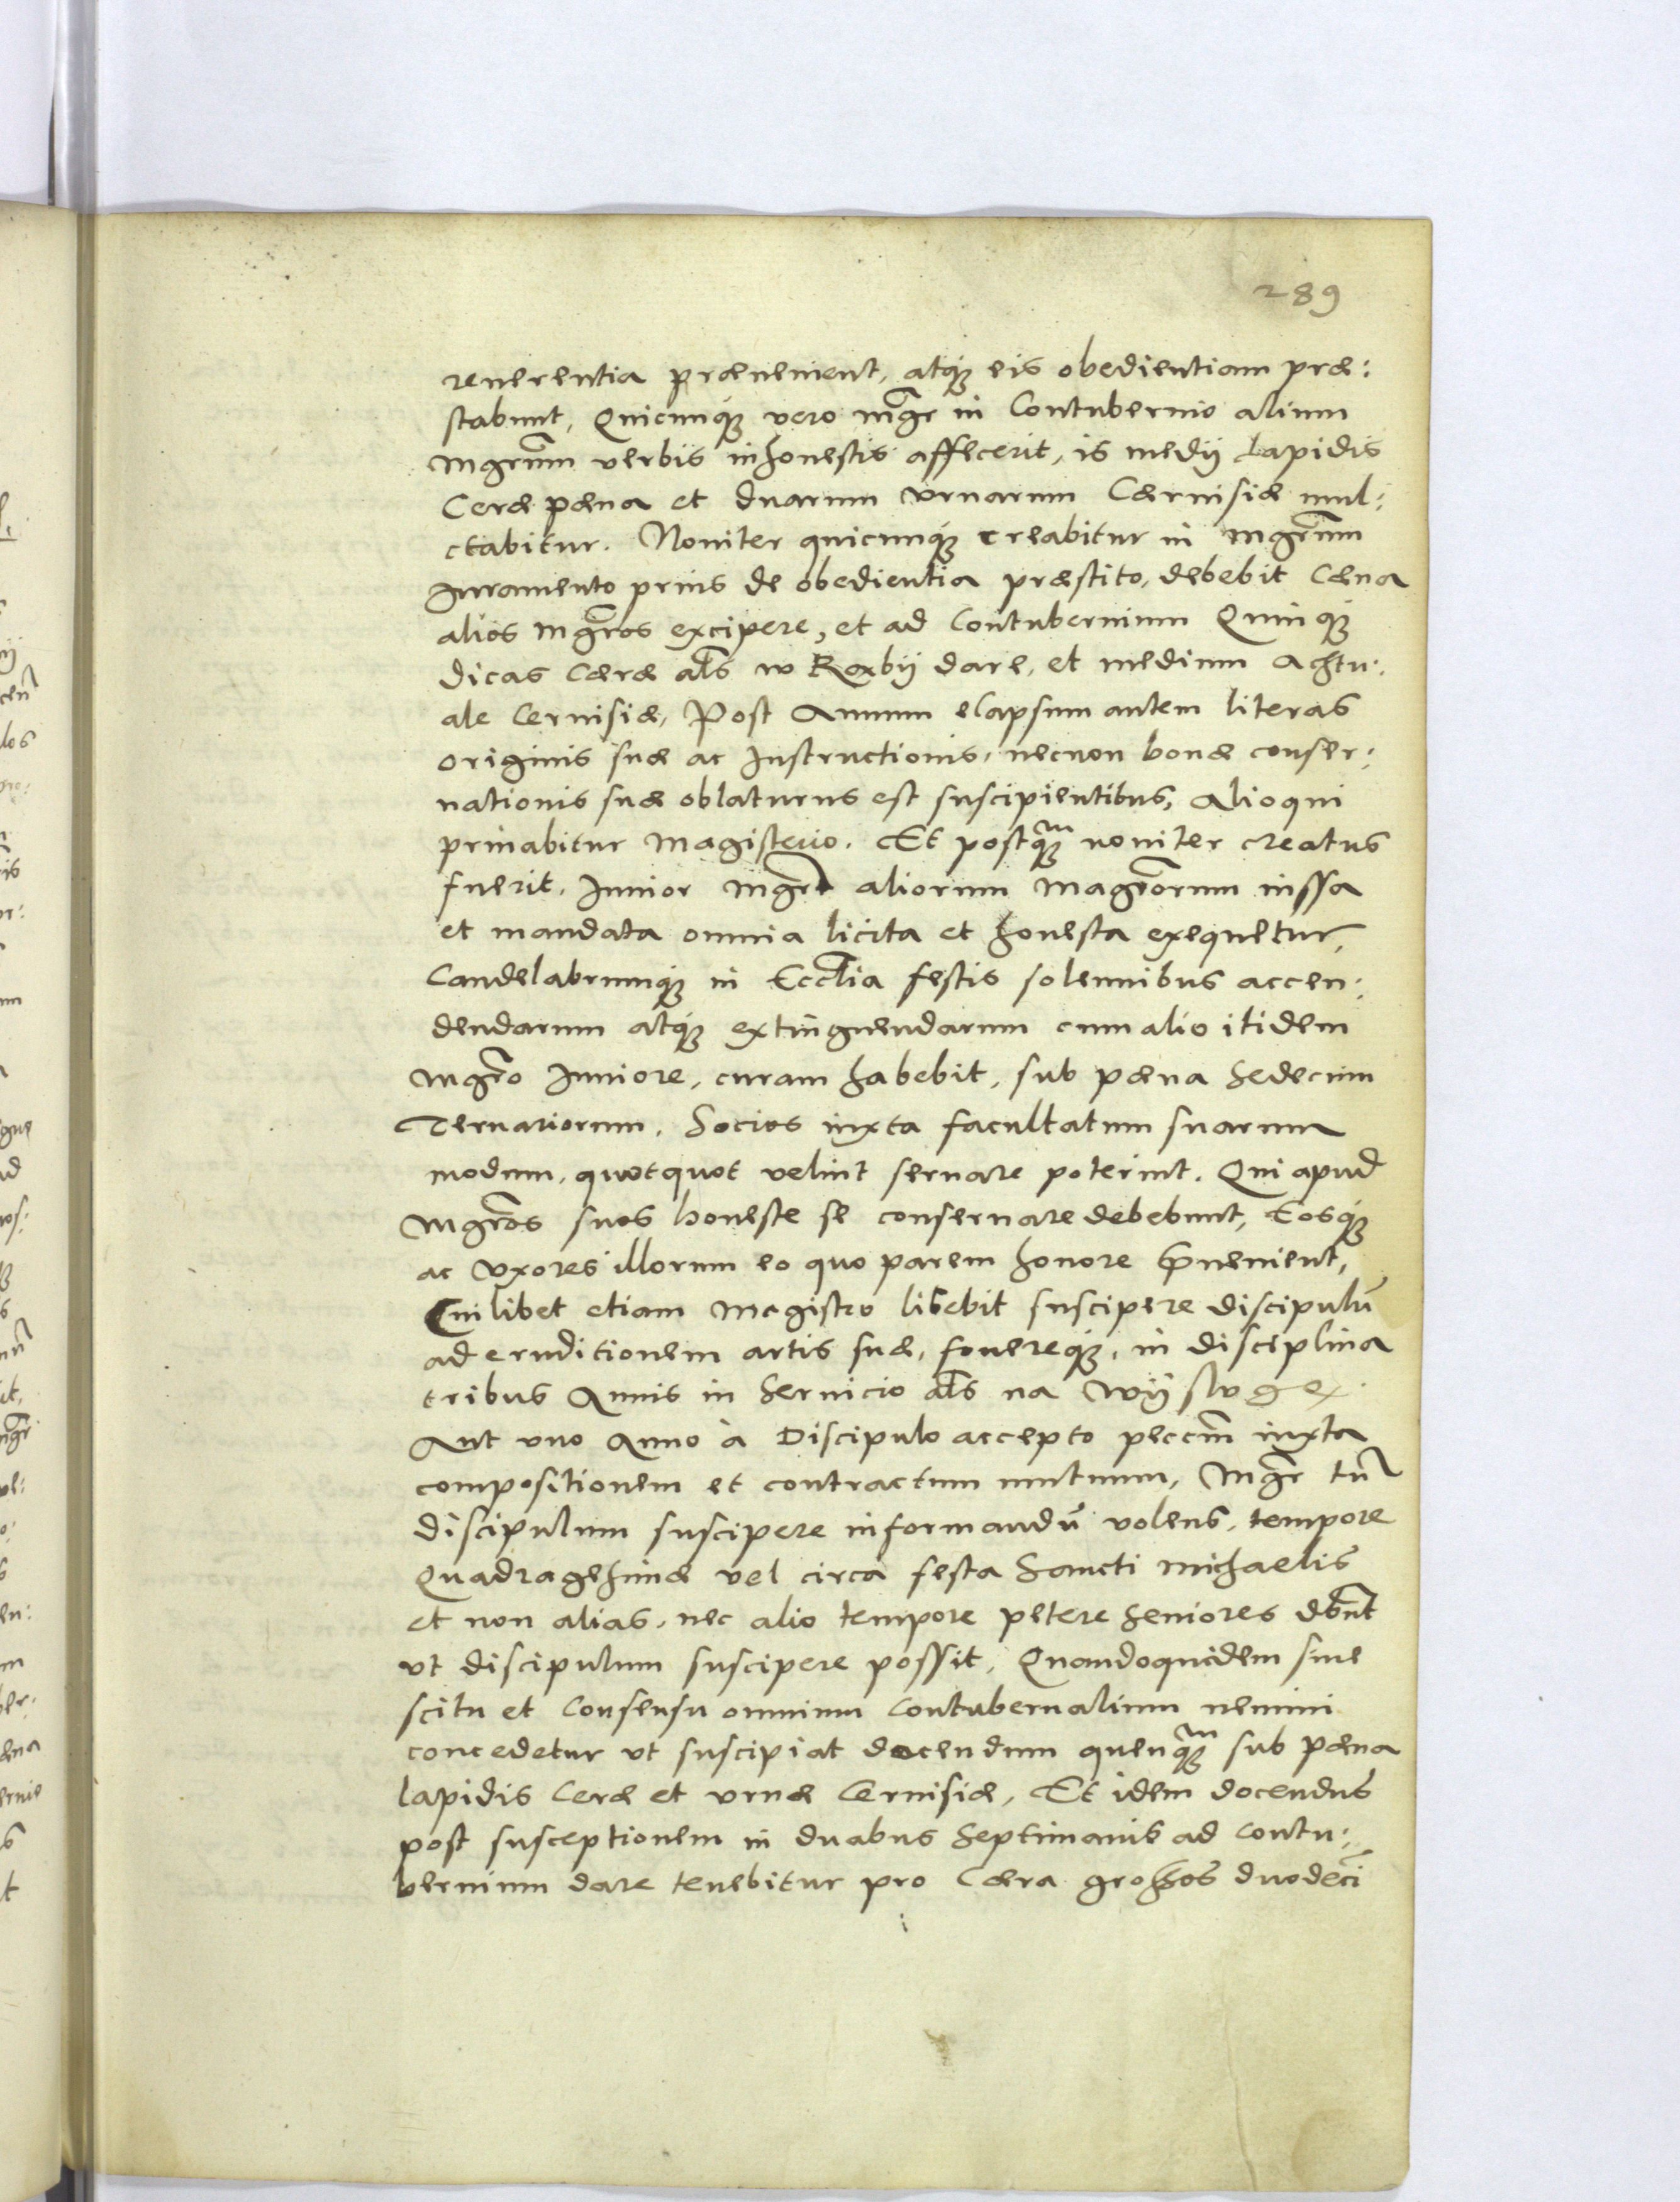 289
reuerentia præuenient, atq́ue eis obedientiam præ:
stabunt, Quicunq́ue vero mgr̃ in Contubernio alium
mgrum̃ verbis inhonestis affecerit, is medij Lapidis
Ceræ pæna et duarum vrnarum Cæruisiæ mul:
ctabitur. Nouiter quicunq́ue creabitur in mgrum̃
Iuramento prius de obedientia præstito, debebit Cæna
alios mgros̃ excipere, et ad Contubernium Quinq́ue
dicas Cæræ als̃ w Roxbij dare, et medium Achtu:
ale Ceruisiæ, Post Annum elapsum autem literas
originis suæ ac Instructionis, necnon bonæ conser:
uationis suæ oblaturus est suscipientibus, Alioqui
priuabitur Magisterio. Et postq̃uam nouiter creatus
fuerit, Iunior mgrĩ aliorum Magrõrum iussa
et mandata omnia licita et honesta exequetur,
Candelabrumq́ue in Ecclĩa festis solennibus accen:
dendarum atq́ue extinguendarum cum alio itidem
Mgrõ Iuniore, curam habebit, sub pæna Sedecim
Ternariorum. Socios iuxta facultatum suarum
modum, quotquot velint seruare poterint. Qui apud
Mgrõs suos honeste se conseruare debebunt, Eosq́ue
ac vxores illorum eo quo parem honore p̃uenient,
Cuilibet etiam Magistro libebit suscipere discipulũ
ad eruditionem artis suæ, fouereq́ue, in disciplina
tribus Annis in Seruicio als̃ na wÿsluge,
Aut vno Anno à Discipulo accepto peccm̃ iuxta
compositionem et contractum mutuum, Mgr̃ tñ
discipulum suscipere informandũ volens, tempore
Quadragesimæ vel circa festa Sancti Michaelis
et non alias, nec alio tempore petere Seniores dbnt̃
vt discipulum suscipere possit, Quandoquidem sine
scitu et Consensu omnium Contubernalium nemini
concedetur vt suscipiat docendum quenq̃uam sub pæna
lapidis Ceræ et vrnæ Ceruisiæ, Et idem docendus
post susceptionem in duabus Septimanis ad Contu:
bernium dare tenebitur pro Cæra grossos duodecĩ